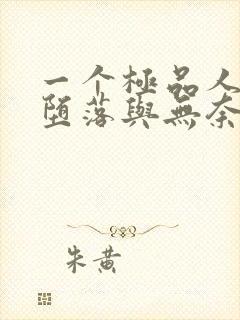 一个極品人
堕落與無奈
朱黄